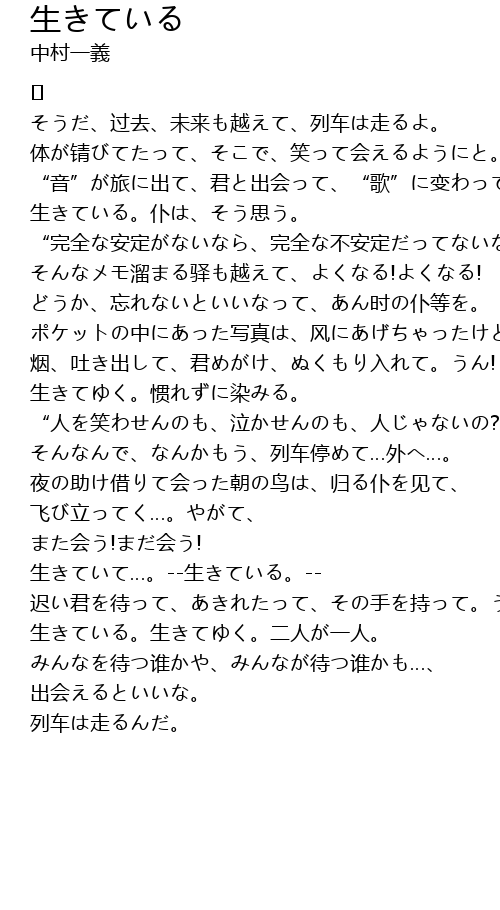 生きている
中村一義
そうだ、过去、未来も越えて、列车は走るよ。
体が锖びてたって、そこで、笑って会えるようにと。
“音”が旅に出て、君と出会って、“歌”に変わって
生きている。仆は、そう思う。
“完全な安定がないなら、完全な不安定だってないな
そんなメモ溜まる驿も越えて、よくなる!よくなる!
どうか、忘れないといいなって、あん时の仆等を。
ポケットの中にあった写真は、风にあげちゃったけど
烟、吐き出して、君めがけ、ぬくもり入れて。うん!
生きてゆく。惯れずに染みる。
“人を笑わせんのも、泣かせんのも、人じゃないの?
そんなんで、なんかもう、列车停めて…外へ…。
夜の助け借りて会った朝の鸟は、归る仆を见て、
飞び立ってく…。やがて、
また会う!まだ会う!
生きていて…。--生きている。--
迟い君を待って、あきれたって、その手を持って。う
生きている。生きてゆく。二人が一人。
みんなを待つ谁かや、みんなが待つ谁かも…、
出会えるといいな。
列车は走るんだ。